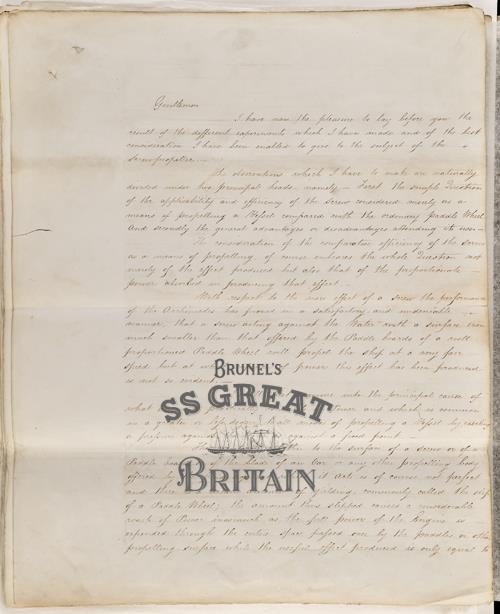 Gentlemen
I have now the pleasure to lay before you the
result of the different experiments which I have made and of the best
consideration I have been enabled to give to the subject of the
Screw propeller
The observations which I have to make are naturally
divided under two principal heads, namely — First the simple Question
of the applicability and efficiency of the Screw considered merely as a
means of propelling a Vessel compared with the ordinary Paddle Wheel
And secondly the general advantages or disadvantages attending its use —
The consideration of the comparative efficiency of the Screw
as a means of propelling, of course embraces the whole Question not
merely of the effect produced but also that of the proportionate
power absorbed in producing that effect —
With respect to the mere effect of a Screw the performance
of the Archimedes has proved in a satisfactory and undeniable
manner, that a screw acting against the Water with a surface even
much smaller than that offered by the Paddle boards of a well
proportioned Paddle Wheel will propel the ship at a very fair
speed but at what power this effect has been produced
is not so evident
into the principal cause of
what and which is common
in a greater or less degree to all means of propelling a Vessel by exerting
a pressure against a fixed point —
to the surface of a screw or of a
Paddle of the blade of an Oar or any other propelling body
offered by it acts is of course not perfect
and there of yielding, commonly called the slip
of a Paddle Wheel; the amount thus slipped causes a considerable
waste of Power inasmuch as the full power of the Engine is
expended through the entire space passed over by the paddles or other
propelling surface while the useful effect produced is only equal to
BRUNEL'S
SS GREAT
BRITAIN